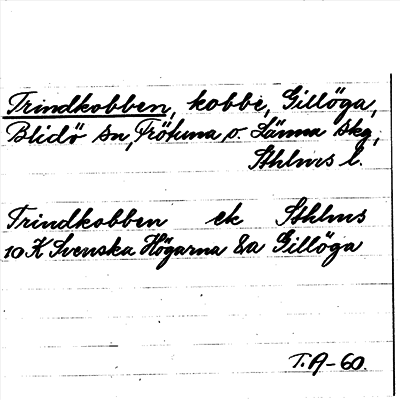 Trindkobben, kobbe, Gillöga,
Blidö sn, Frötuna o. Länna skg,
Sthlms l.
Trindkobben ek Sthlms
10 K Svenska Högarna 8a Gillöga
T.A-60.